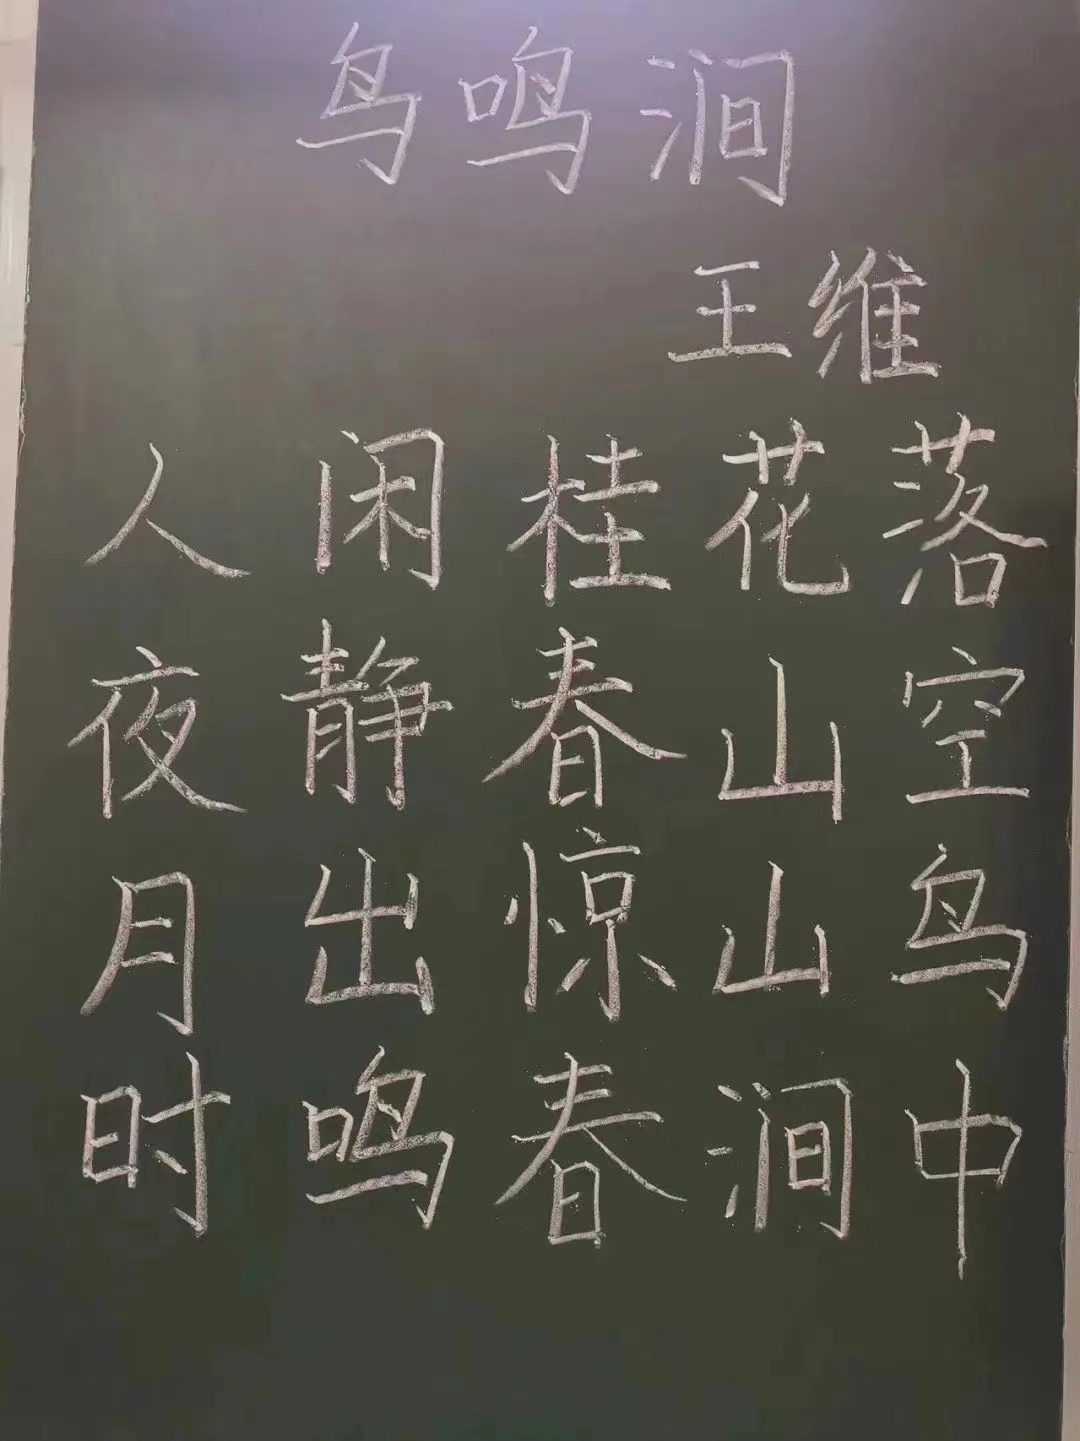 鸟鸣涧
王维
人闲桂花落
夜静春山空
月出惊山鸟
时鸣春涧中